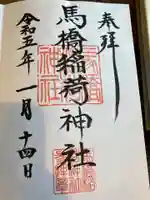 奉拝
馬橋稲荷神社
令和五年一月十四日